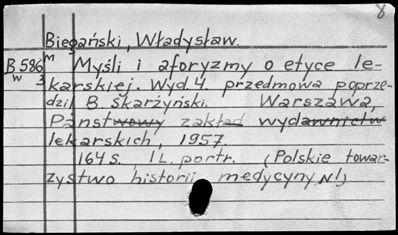 8
Biegański, Władysław.
B 586 m Myśli i aforyzmy o etyce le-
w 3 karskiej. Wyd 4. przedmowa poprze-
dził B. Skarżyński. Warszawa,
Państwowy zakład wydawnictw
lekarskich, 1957.
164 s. 1 L. portr. (Polskie towar-
zystwo historii medycyny N 1)